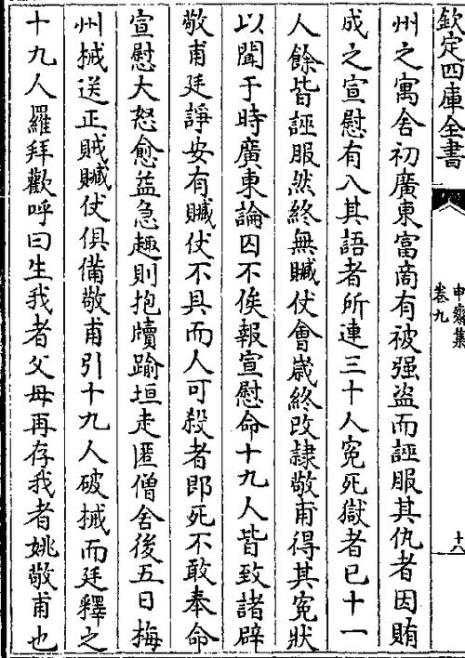 欽定四庫全書
申齋集
卷九
十六
州之寓舍初廣東富商有被强盗而誣服其仇者因賄
成之宣慰有入其語者所連三十人寃死獄者已十一
人餘皆誣服然終無贓仗會歲終改隸敬甫得其寃狀
以聞于時廣東論囚不俟報宣慰命十九人皆致諸辟
敬甫廷諍安有贓仗不具而人可殺者即死不敢奉命
宣慰大怒愈益急趣則抱牘踰垣走匿僧舍後五日梅
州械送正賊贓仗俱備敬甫引十九人破械而廷釋之
十九人羅拜歡呼曰生我者父母再存我者姚敬甫也